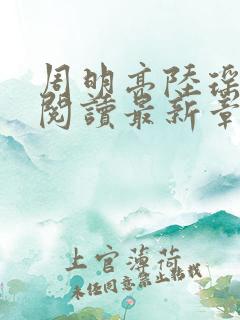 周明高陸瑤
閱讀最新章
上官薄荷
未经同意禁止转载